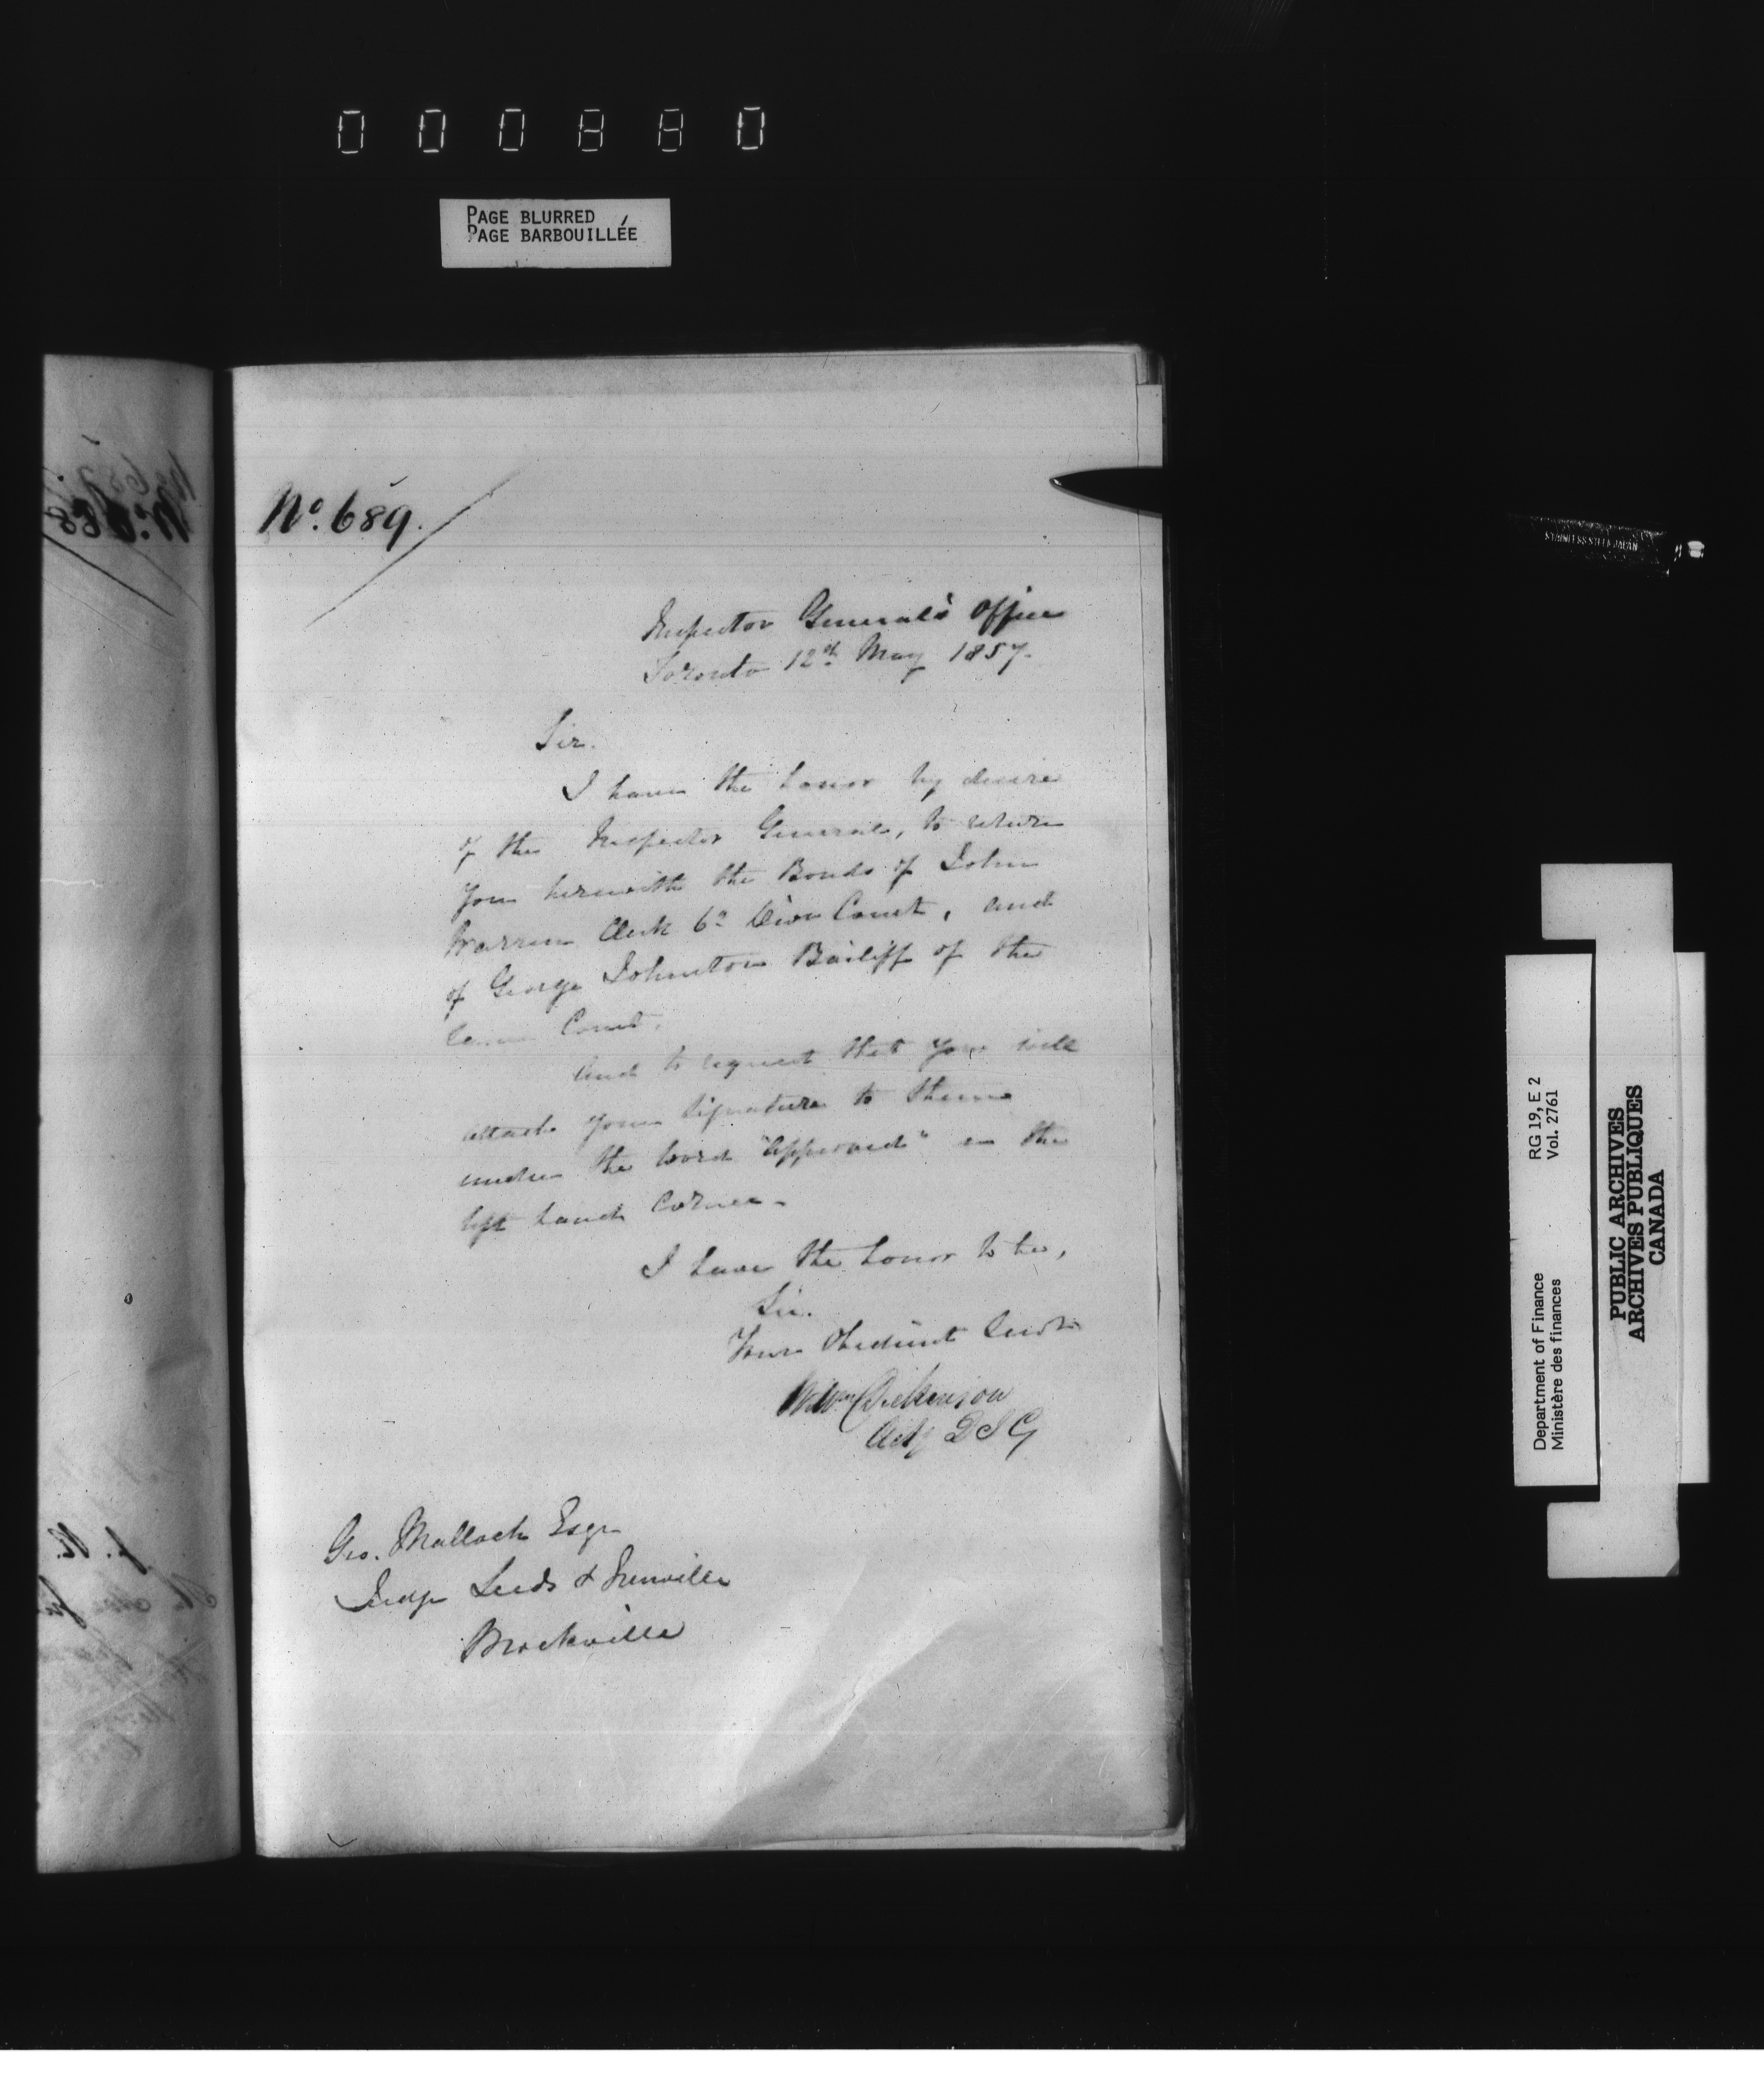 000880
PAGE BLURRED
PAGE BARBOUILLÉE
No. 689.
Inspector General's Office
Toronto 12th May 1857.
Sir.
I have the honor by desire
of the Inspector General, to return
you herewith the Bonds of John
Warren Clerk 6th Divn Court, and
of George Johnston Bailiff of the
same Court,
and to request that you will
attach your signature to them
under the word "approved" in the
left hand corner-
I have the honor to be,
Sir.
Your Obedient Servt
Wm Dickinson
Actg D I G
Geo. Malloch Esqr
Judge Leeds & Grenville
Brockville
STAINLESS STEEL JAPAN
RG 19, E 2
Vol. 2761
Department of Finance
Ministère des finances
PUBLIC ARCHIVES
ARCHIVES PUBLIQUES
CANADA